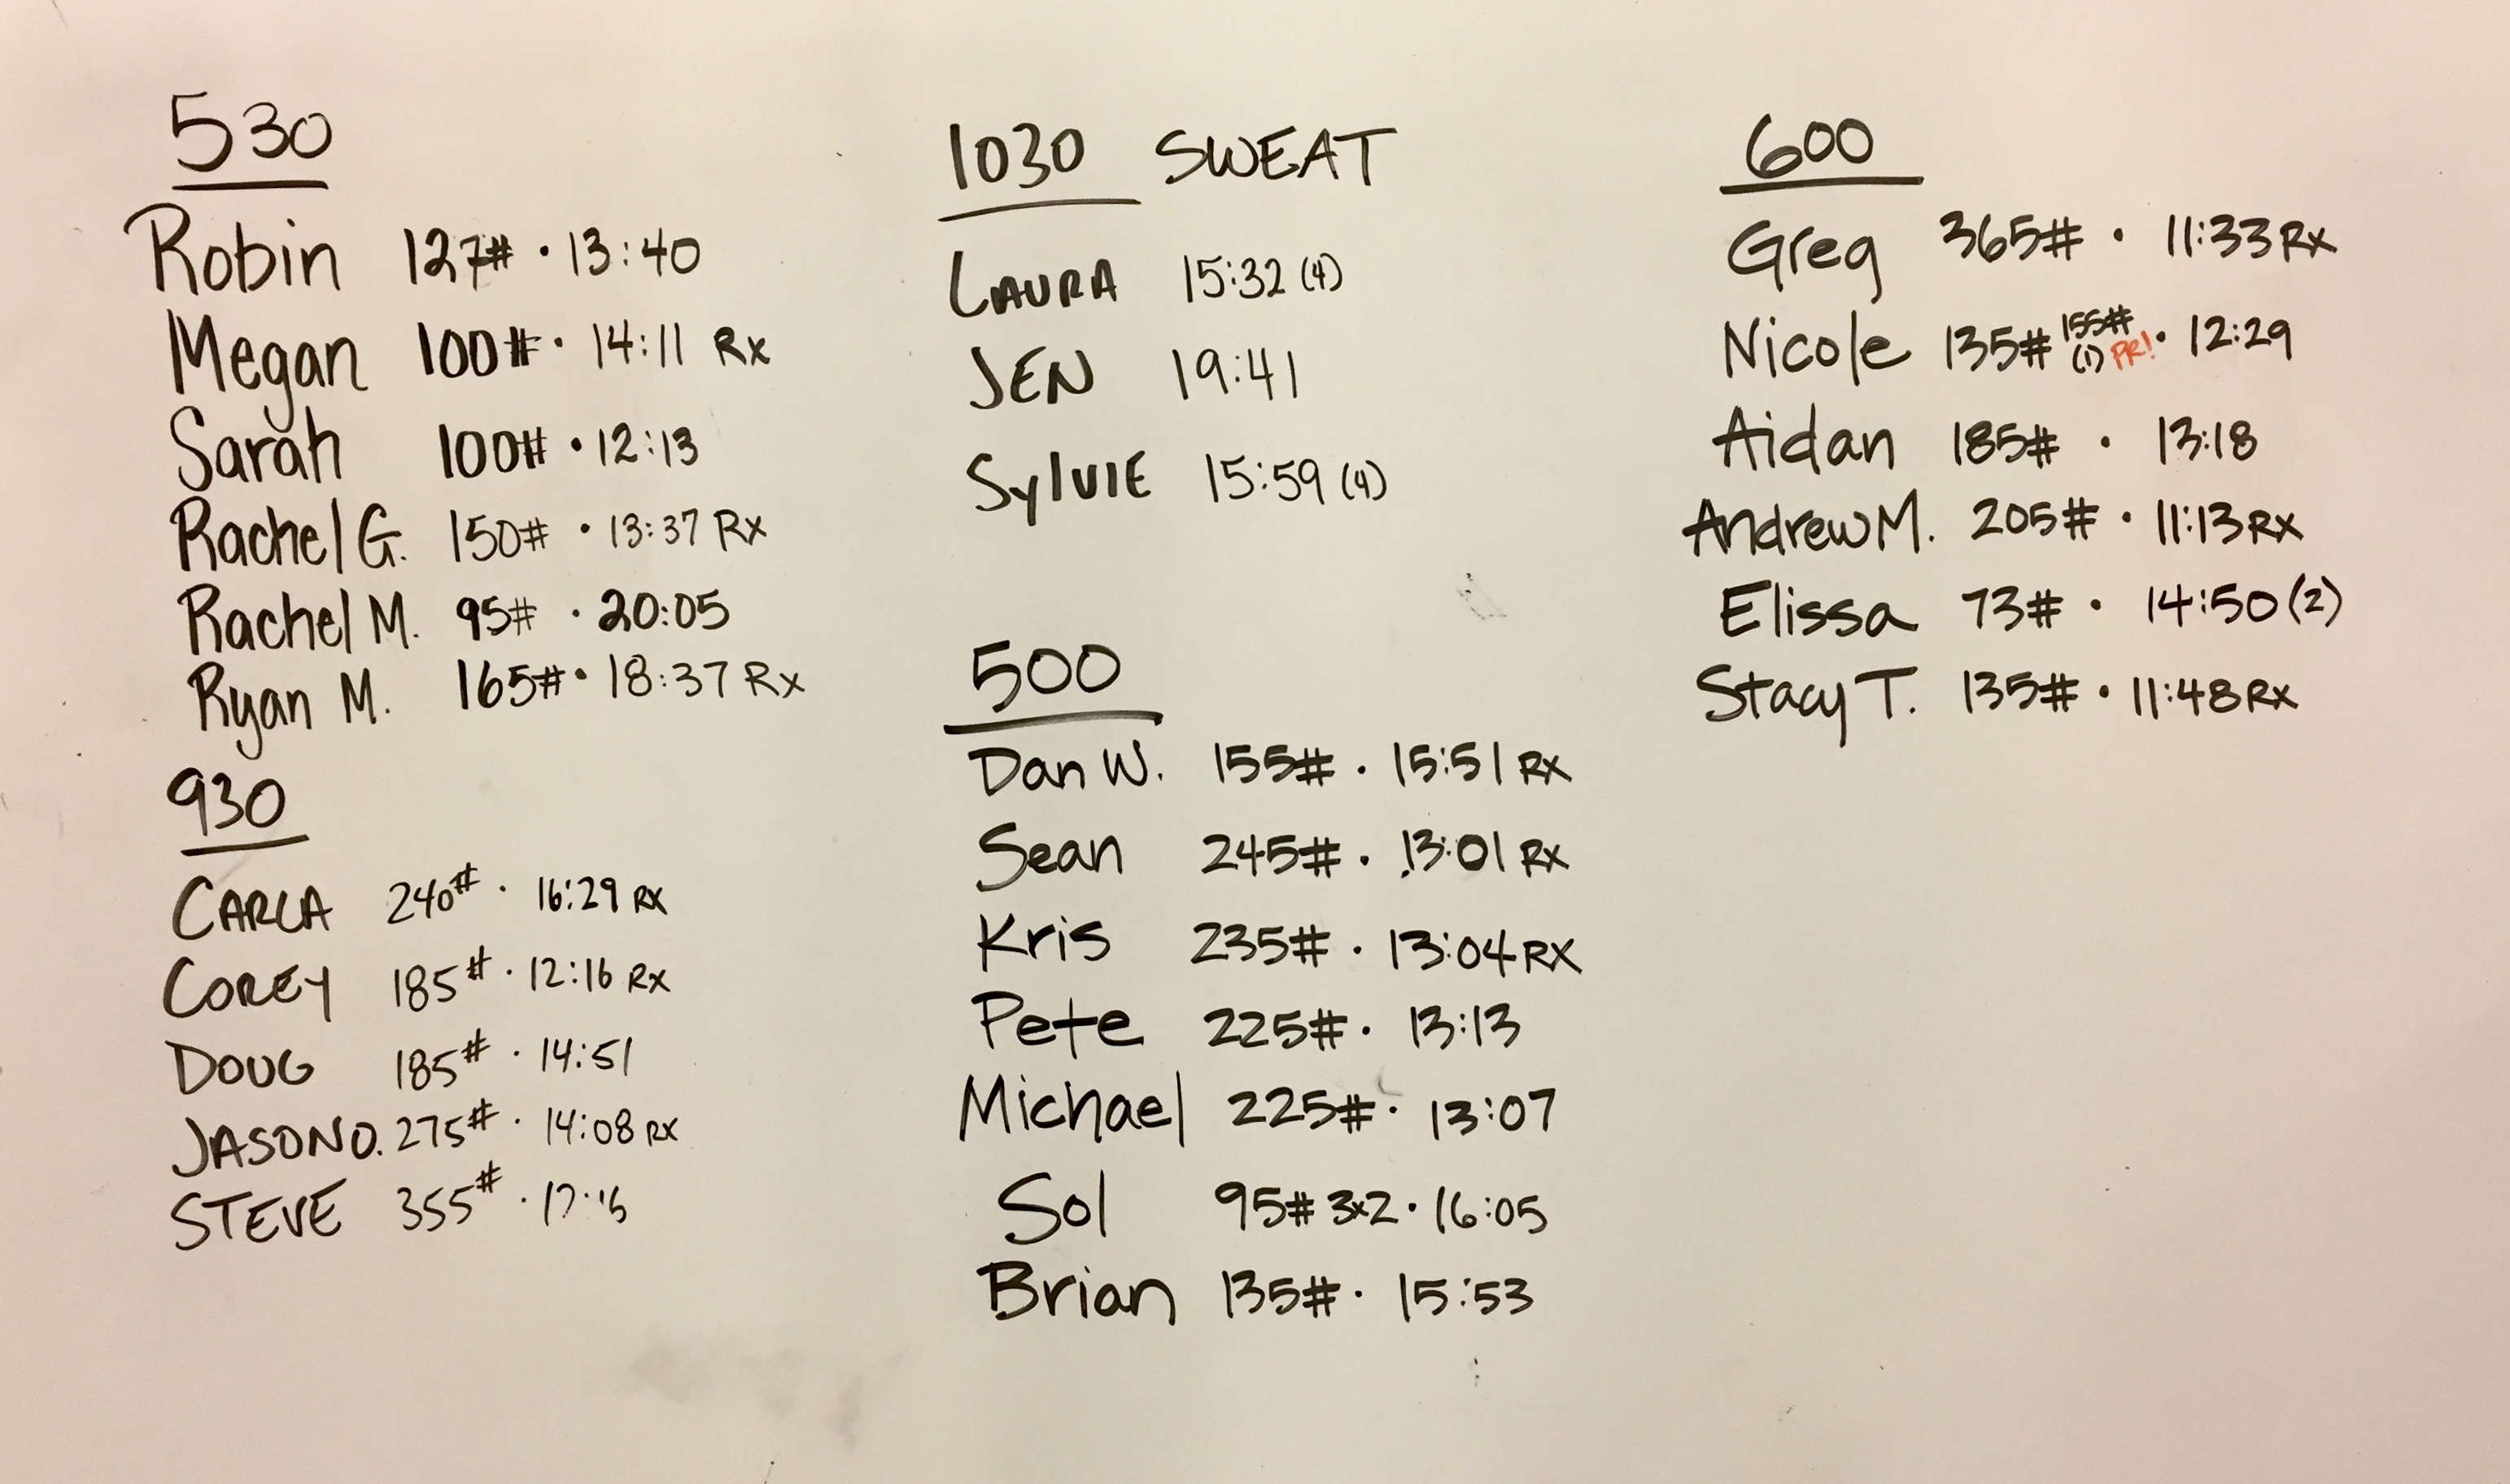 530
Robin 127# · 13:40
Megan 100# · 14:11 Rx
Sarah 100# · 12:13
Rachel G. 150# · 13:37 Rx
Rachel M. 95# · 20:05
Ryan M. 165# · 18:37 Rx
930
CARLA 240# · 16:29 RX
COREY 185# · 12:16 RX
DOUG 185# · 14:51
JASON O. 275# · 14:08 RX
STEVE 355# ·
1030 SWEAT
LAURA 15:32 (4)
JEN 19:41
SYLVIE 15:59 (4)
500
Dan W. 155# · 15:51 RX
Sean 245# · 13:01 RX
Kris 235# · 13:04 RX
Pete 225# · 13:13
Michael 225# · 13:07
Sol 95# 3x2 · 16:05
Brian 135# · 15:53
600
Greg 365# · 11:33 Rx
Nicole 135# 155# (1) PR! · 12:29
Aidan 185# · 13:18
Andrew M. 205# · 11:13 RX
Elissa 73# · 14:50 (2)
Stacy T. 135# · 11:48 RX